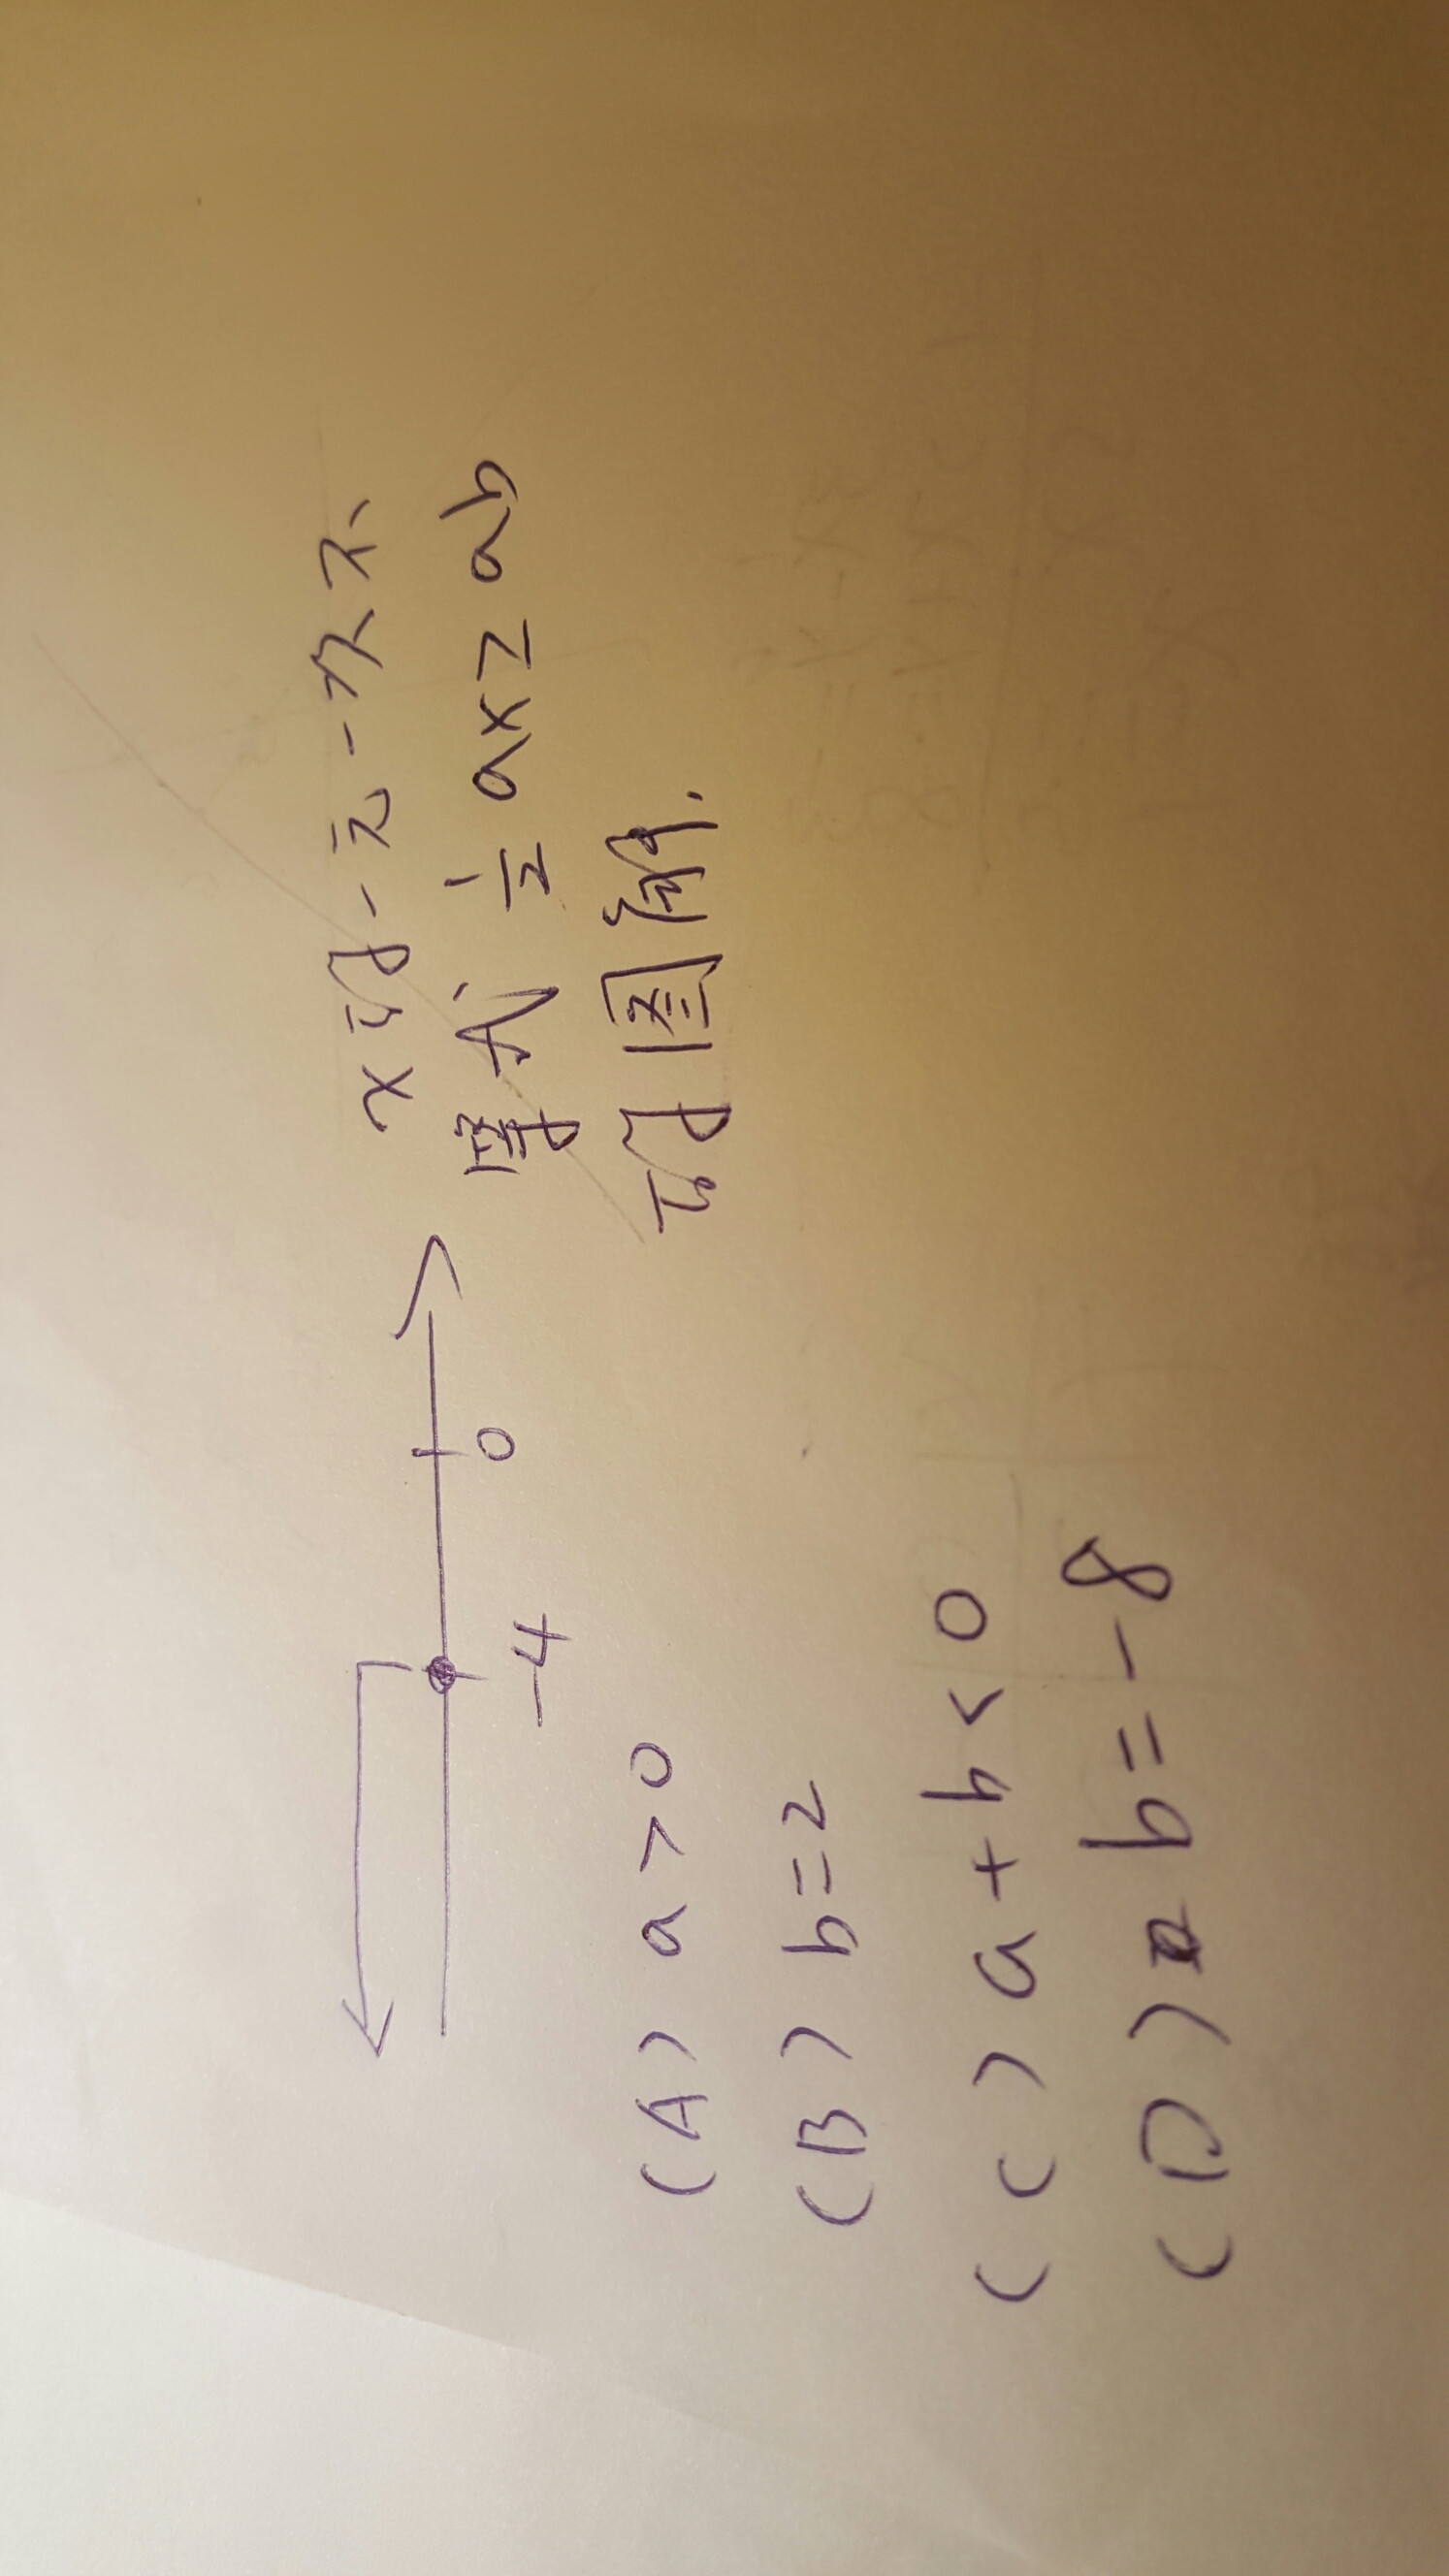 x的一元一次不
等式 ½ax≥ab
的圖解.
-4 0
(A) a>0
(B) b=2
(C) a+b<0
(D) b=-8